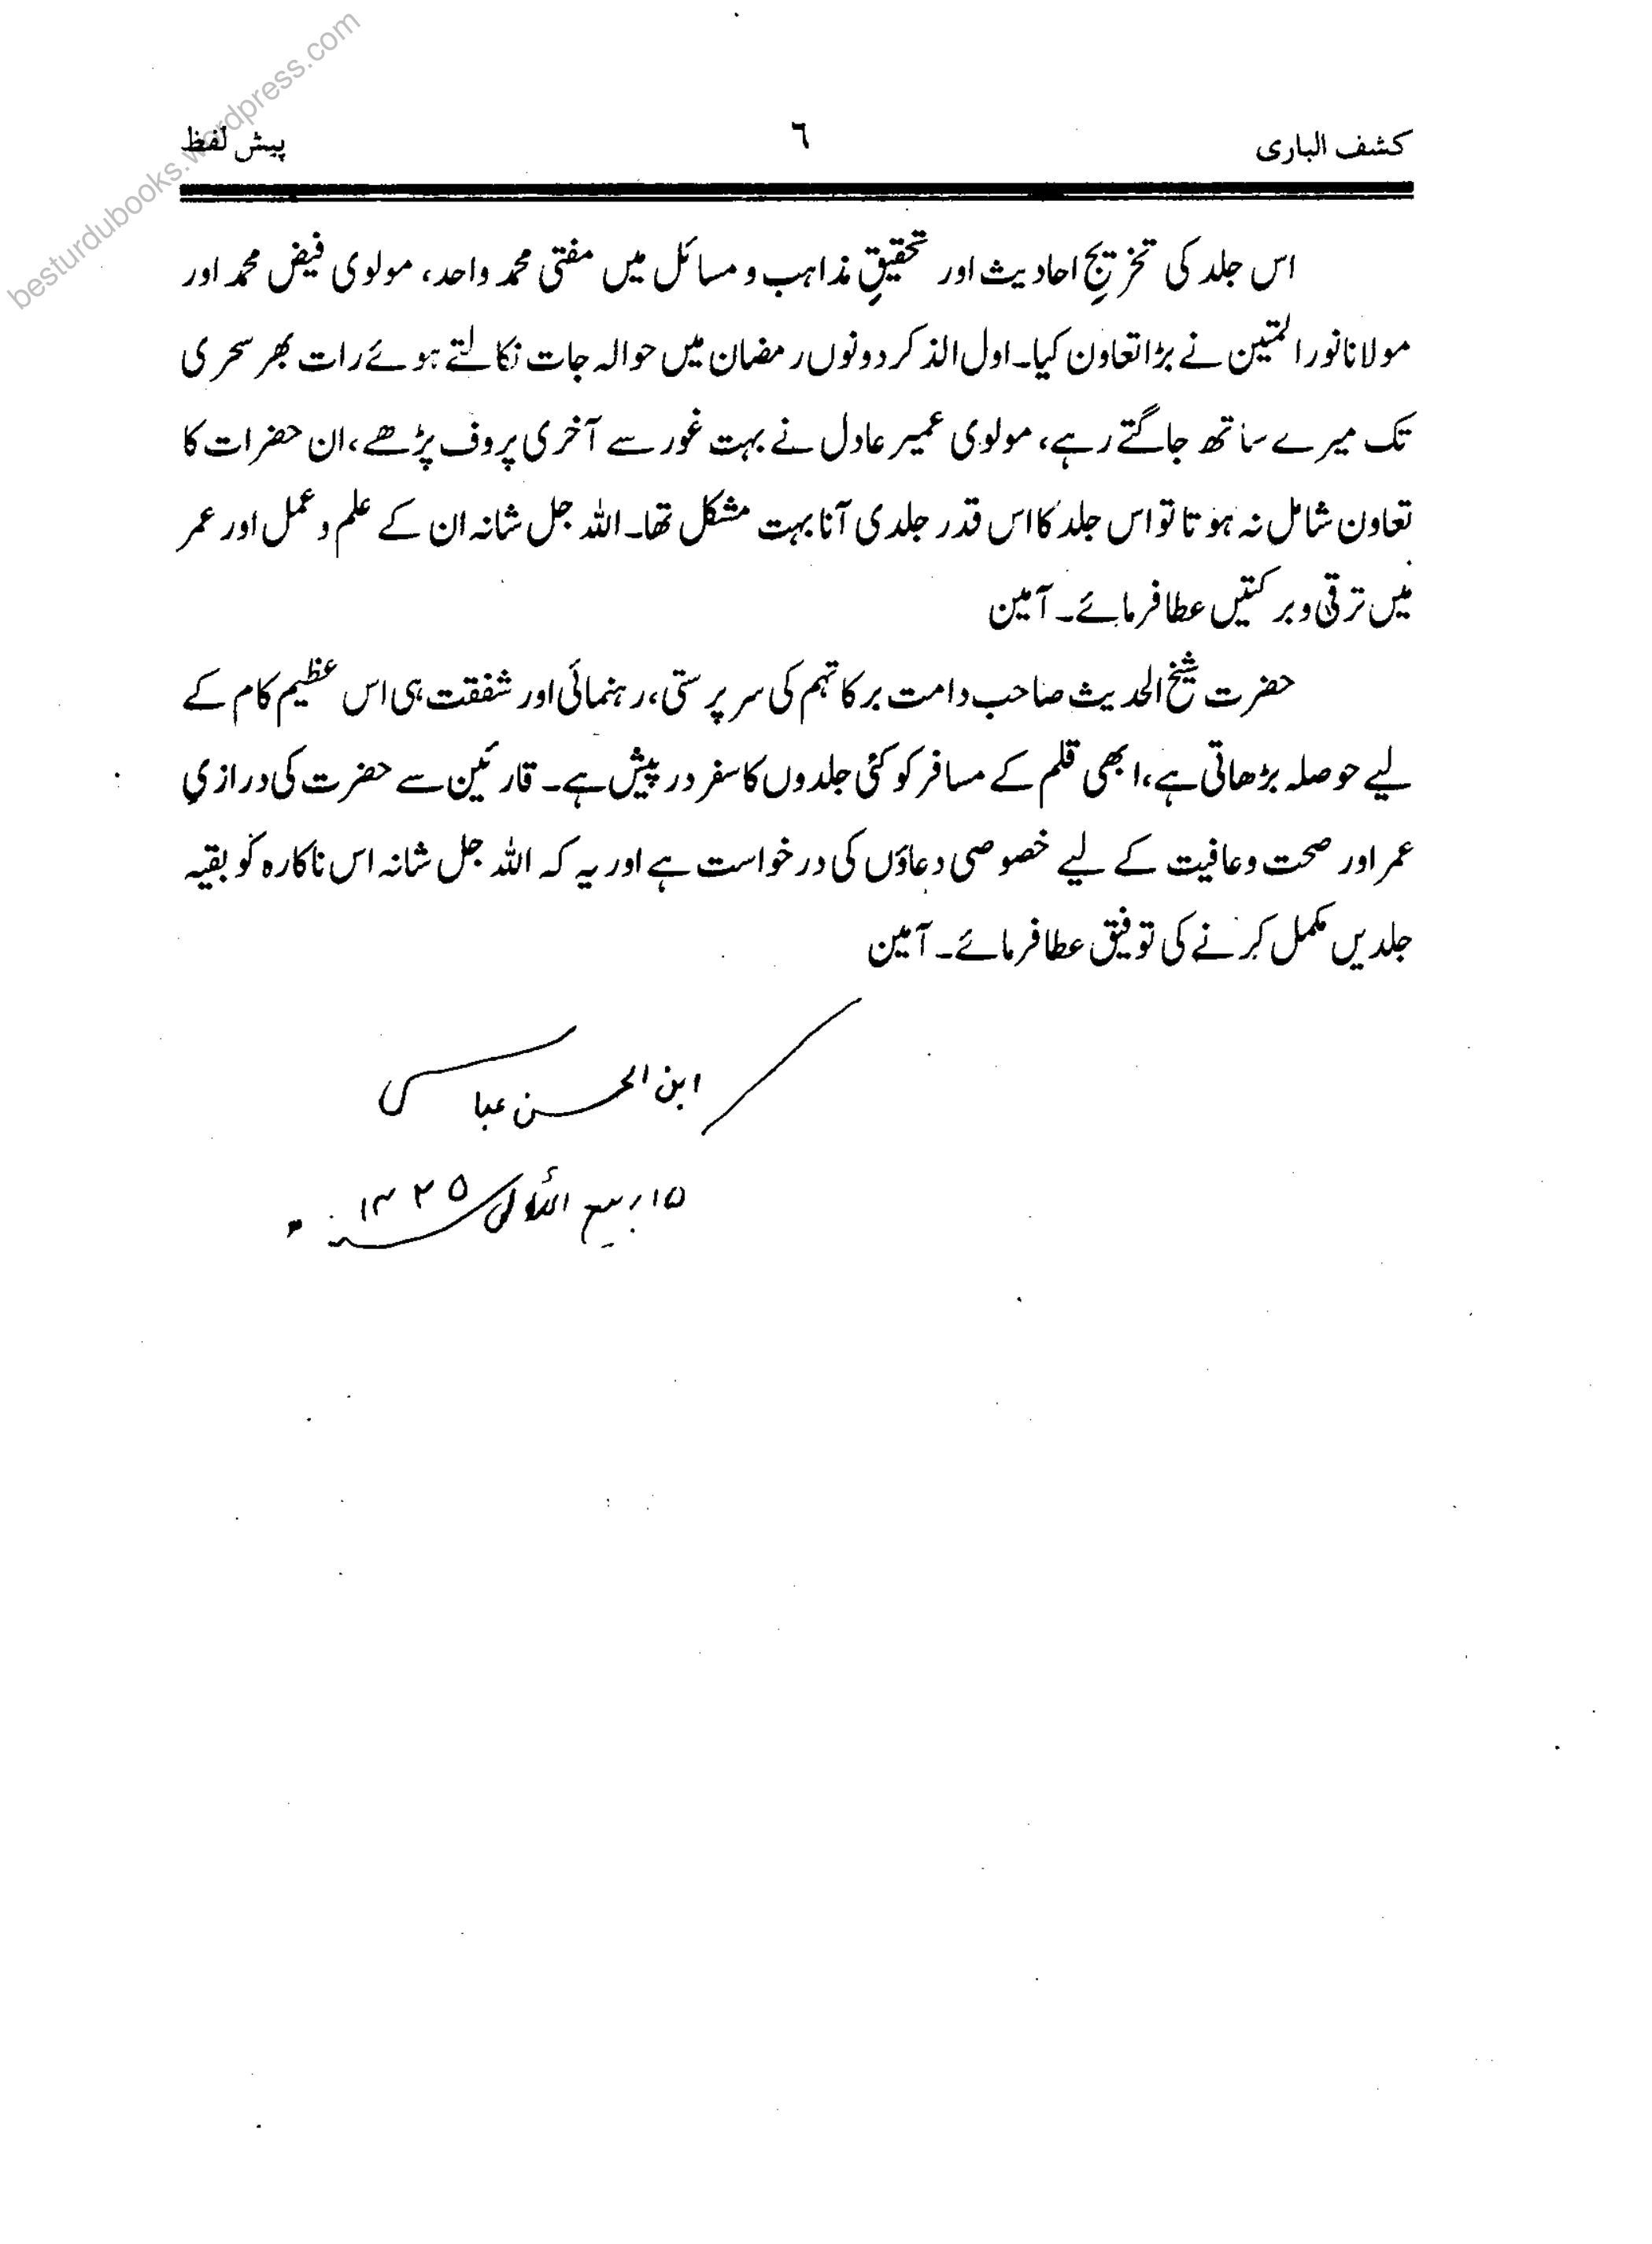 besturdubooks.wordpress.com
کشف الباری ٦ پیش لفظ
اس جلد کی تخریجِ احادیث اور تحقیقِ مذاہب و مسائل میں مفتی محمد واحد، مولوی فیض محمد اور
مولانا نور المتین نے بڑا تعاون کیا۔ اول الذکر دونوں رمضان میں حوالہ جات نکالتے ہوئے رات بھر سحری
تک میرے ساتھ جاگتے رہے، مولوی عمیر عادل نے بہت غور سے آخری پروف پڑھے، ان حضرات کا
تعاون شامل نہ ہوتا تو اس جلد کا اس قدر جلدی آنا بہت مشکل تھا۔ اللہ جل شانہ ان کے علم و عمل اور عمر
میں ترقی و برکتیں عطا فرمائے۔ آمین
حضرت شیخ الحدیث صاحب دامت برکاتہم کی سرپرستی، رہنمائی اور شفقت ہی اس عظیم کام کے
لیے حوصلہ بڑھاتی ہے، ابھی قلم کے مسافر کو کئی جلدوں کا سفر درپیش ہے۔ قارئین سے حضرت کی درازیِ
عمر اور صحت و عافیت کے لیے خصوصی دعاؤں کی درخواست ہے اور یہ کہ اللہ جل شانہ اس ناکارہ کو بقیہ
جلدیں مکمل کرنے کی توفیق عطا فرمائے۔ آمین
ابن الحسن عباسی
۱۵ ربیع الأولی ۱۴۲۵ھ